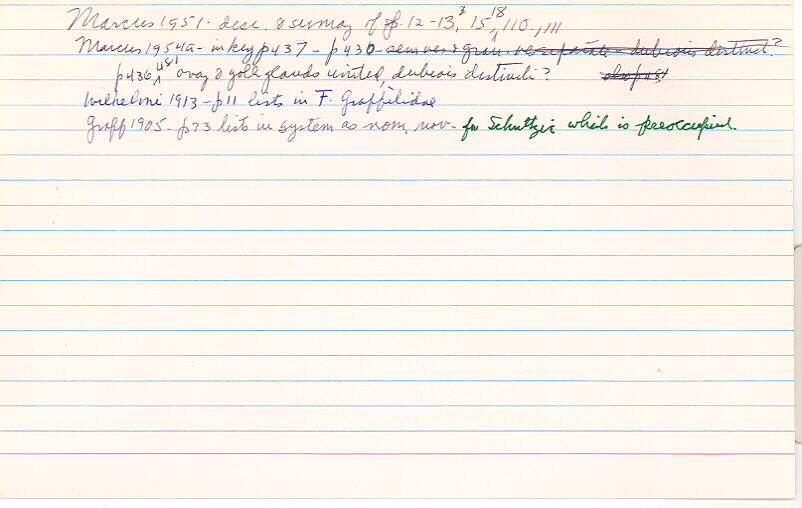 Marcus 1951 - desc. & summary of sp. 12-13, 15, 18, 110-, 111
Marcus 1954a - in key p437 - p430 - dubious distinct?
p436, 481 ovary & yolk glands united, dubious distinct?
Wilhelmi 1913 - p11 lists in F. Graffillidae
Graff 1905 - p73 lists in system as nom. nov. - for Schultzia which is preoccupied.